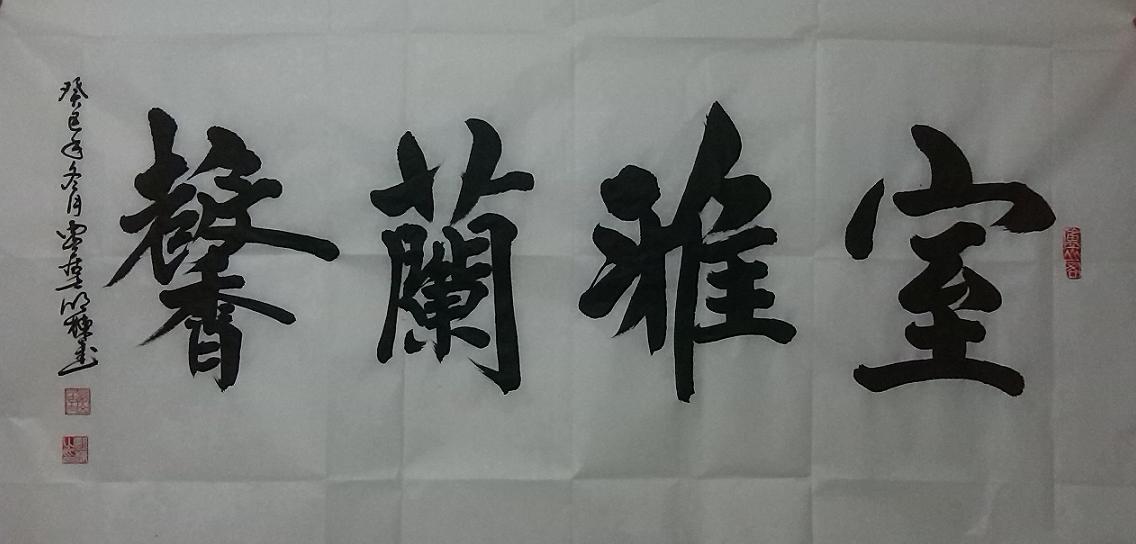 室雅蘭馨
癸巳年冬月